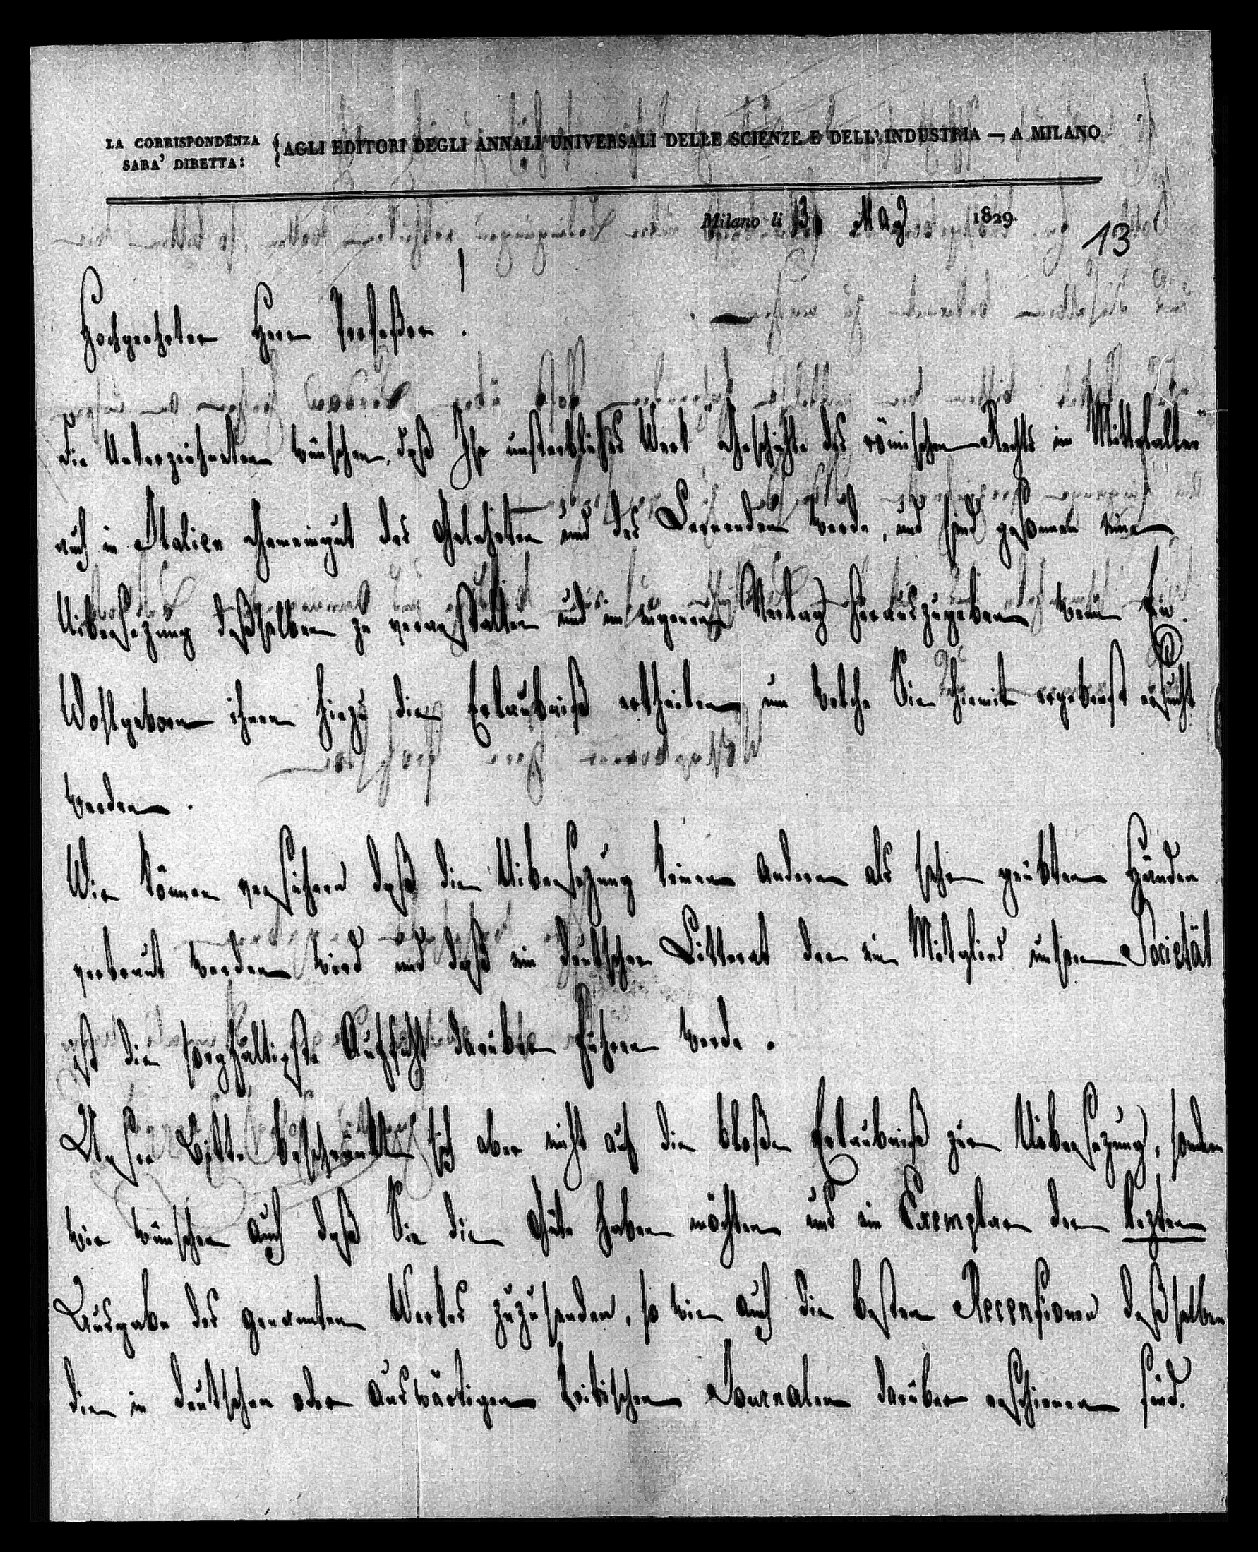 LA CORRISPONDENZA
SARA' DIRETTA:
AGLI EDITORI DEGLI ANNALI UNIVERSALI DELLE SCIENZE E DELL'INDUSTRIA — A MILANO
Milano li 13 May 1829.
13
Hochgeehrter Herr Professor!
die Unterzeichneten wünschen, daß Ihr unsterbliches Werk Geschichte des römischen Rechts im Mittelalter
auch in Italien Gemeingut des Gelehrten und des Lernenden werde, und sind gesonnen eine
Uibersezung deßselben zu veranstalten und im eigenen Verlag herauszugeben wenn Ew.
Wohlgeborn ihnen hiezu die Erlaubniß ertheilen, um welche Sie hiemit ergebenst ersucht
werden.
Wir können versichern daß die Uibersezung keinen andern als schon geübten Händen
vertraut werden wird und daß ein deutscher Litterat der ein Mitglied unserer Societät
ist die sorgfältigste Aufsicht darüber führen werde.
Unsere Bitte beschränkt sich aber nicht auf die bloße Erlaubniß zur Uibersezung, sondern
wir wünschen auch daß Sie die Güte haben möchten uns ein Exemplar der lezten
Ausgabe des genannten Werkes zuzusenden, so wie auch die besten Recensionen deßselben
die in deutschen oder auswärtigen kritischen Journalen darüber erschienen sind.